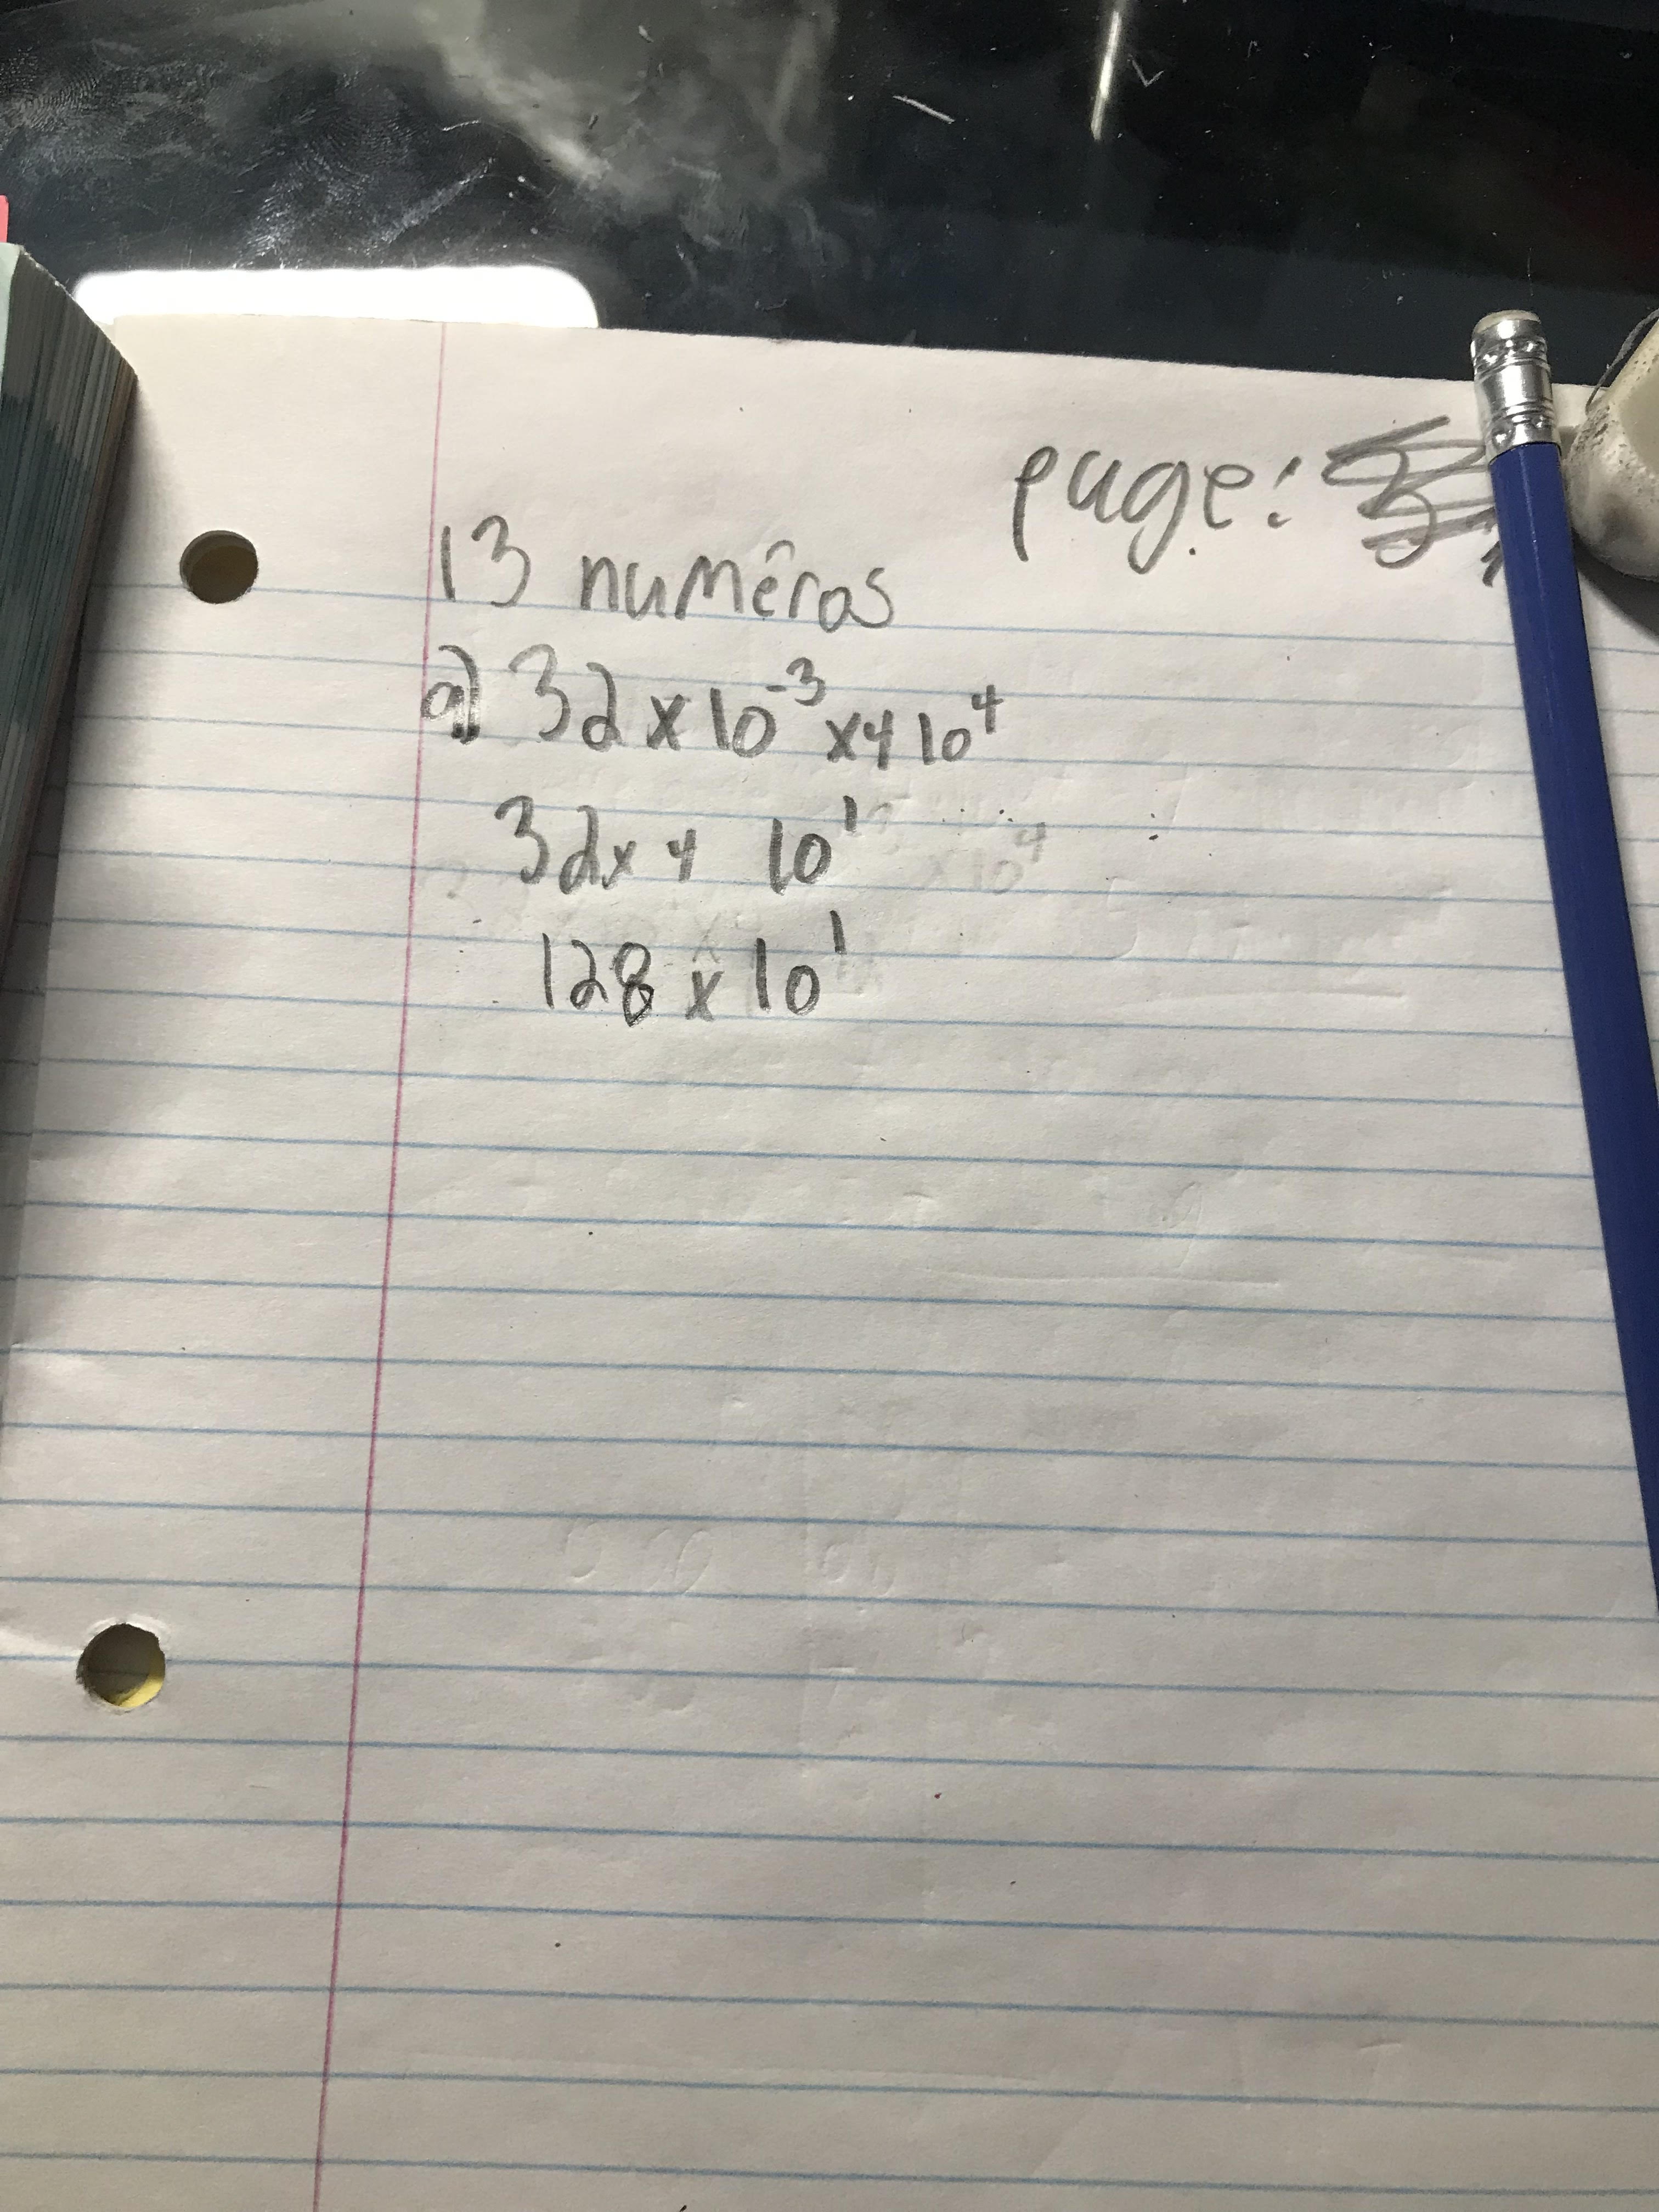 page:
13 numêros
a) 32 x 10⁻³ x 4 10⁴
32 x 4 10¹
128 x 10¹